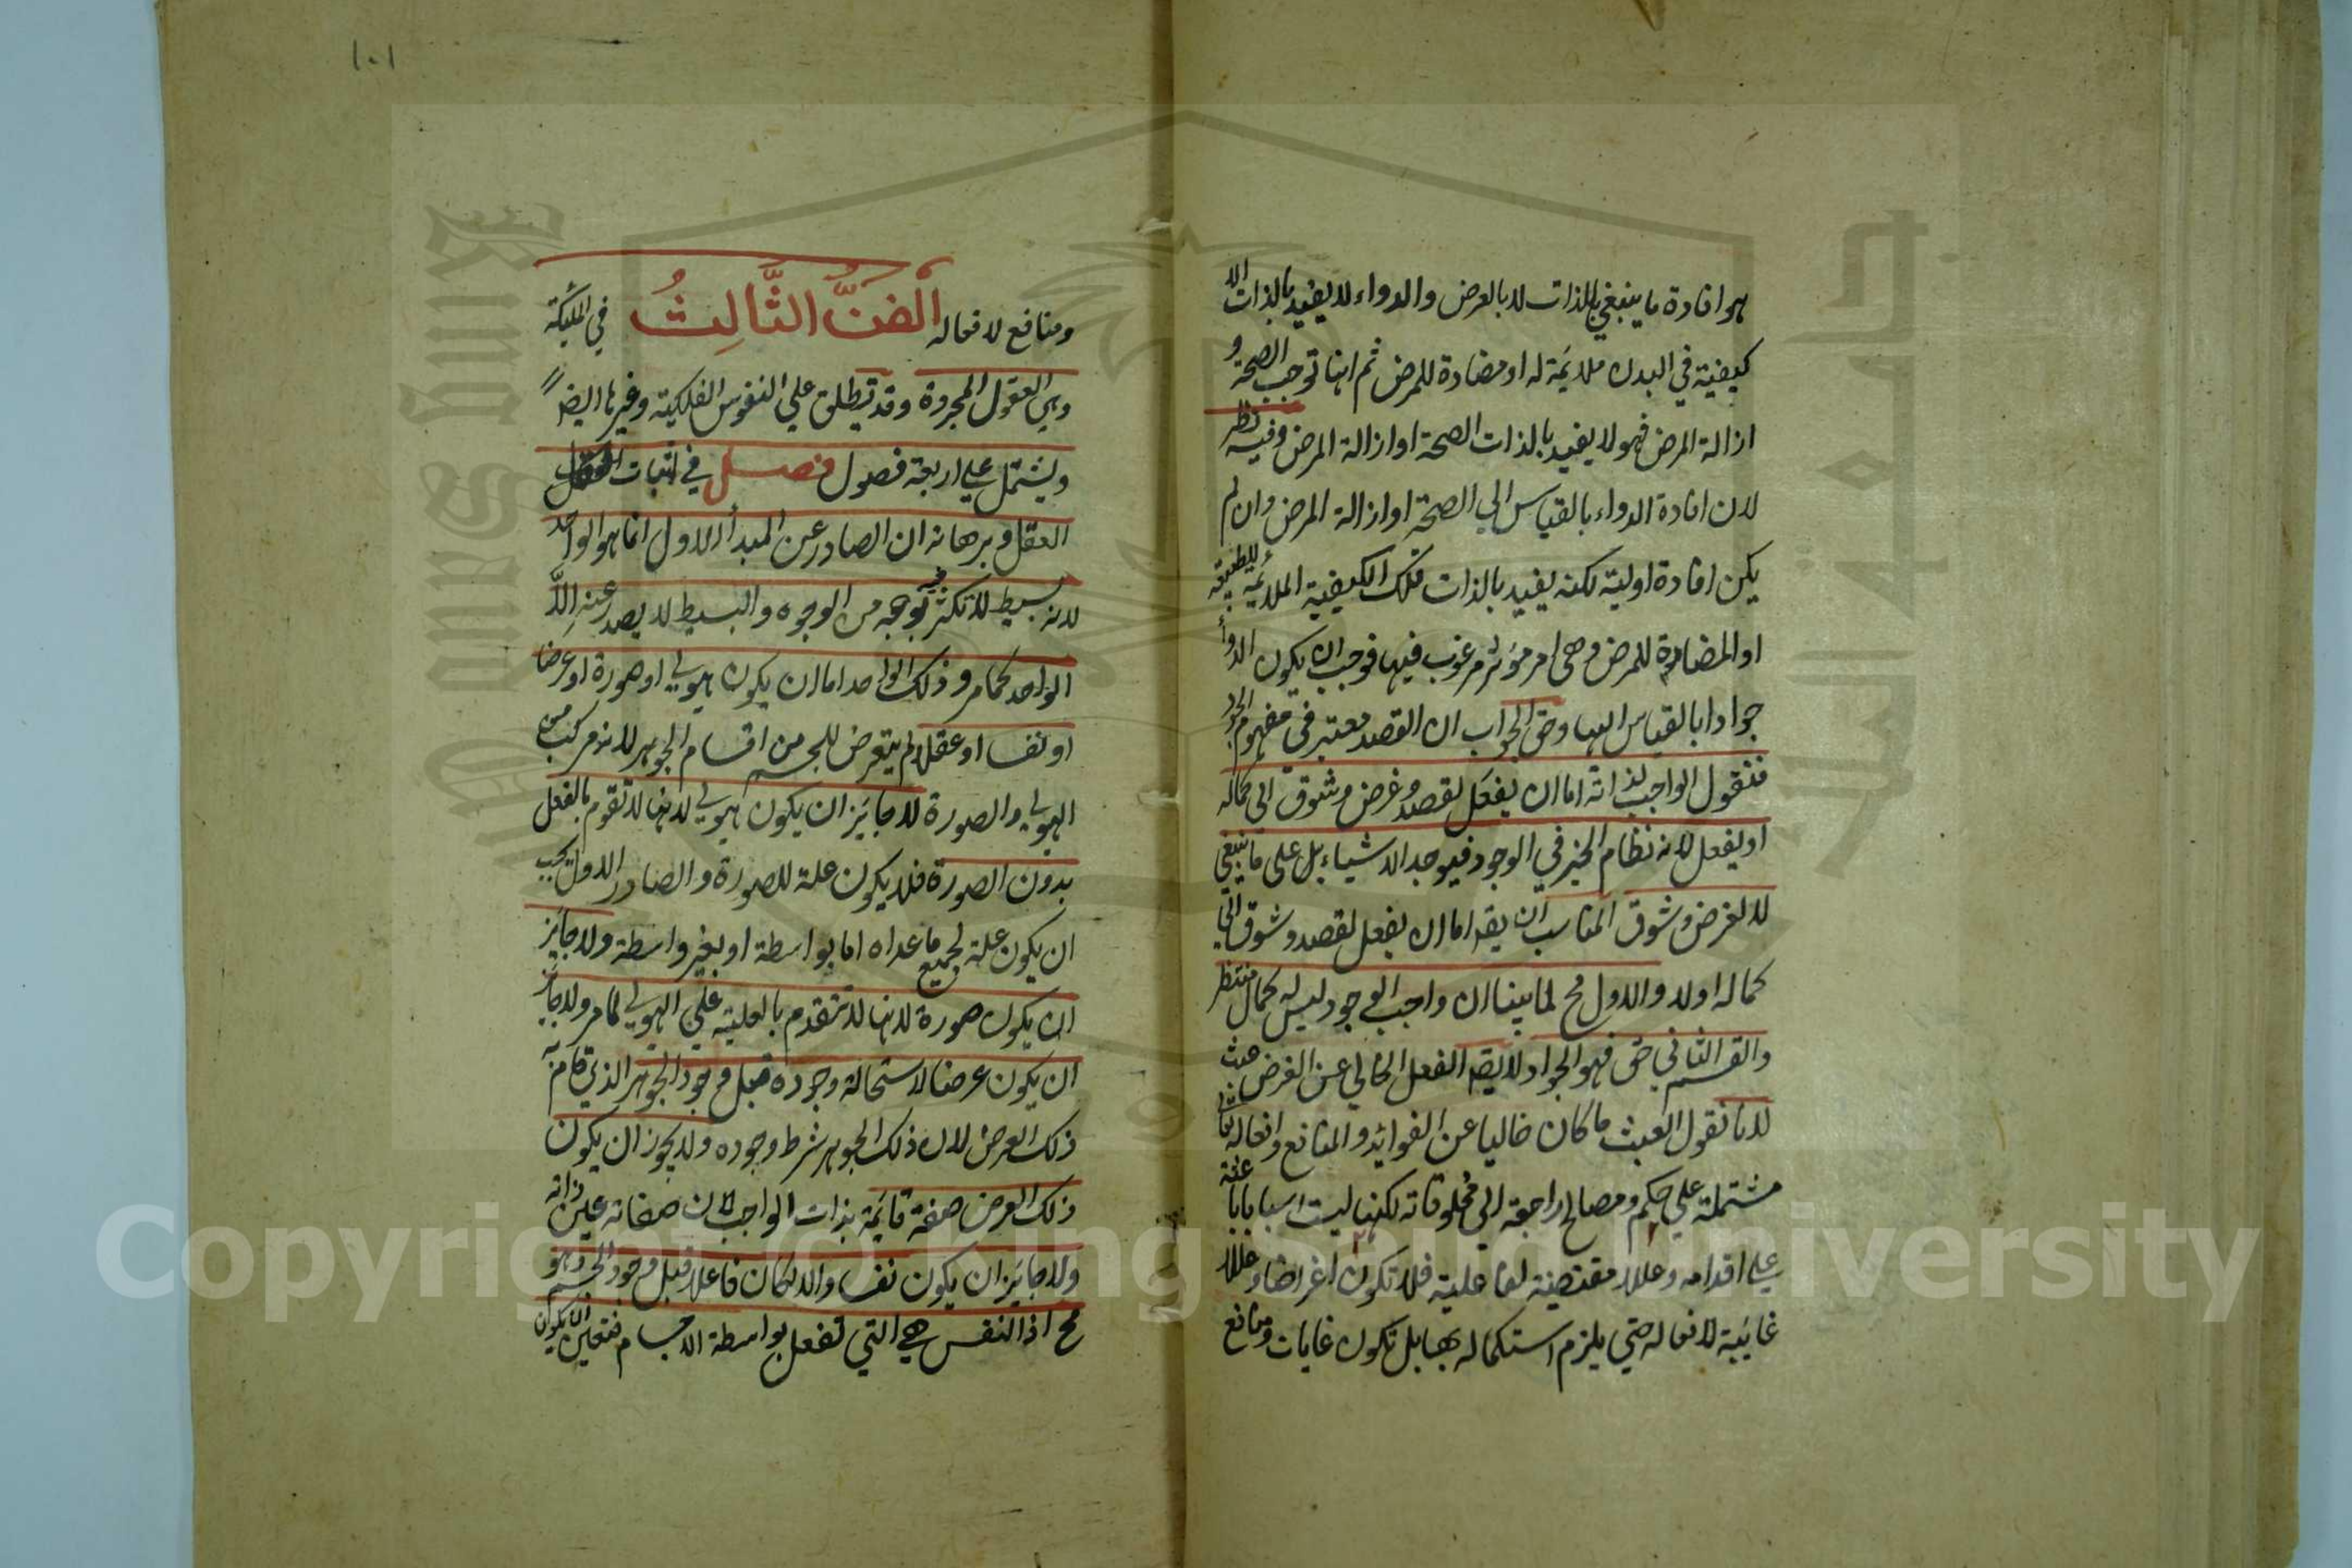 هو افادة ما ينبغي بالذات لا بالعرض والدواء لا يفيد بالذات الا
كيفية في البدن ملائمة له او مضادة للمرض ثم انها توجب الصحة و
ازالة المرض فهو لا يفيد بالذات الصحة او ازالة المرض وفيه نظر
لان افادة الدواء بالقياس الي الصحة او ازالة المرض وان لم
يكن افادة اولية لكنه يفيد بالذات تلك الكيفية الملائمة للطبيعة
او المضادة للمرض وهي امر مؤثر مرغوب فيها فوجب ان يكون الدواء
جوادا بالقياس اليها وحق الجواب ان القصد معتبر في مفهوم الجود
فنقول الواجب لذاته اما ان يفعل لقصد وغرض وشوق الى كماله
او يفعل لانه نظام الخير في الوجود فيوجد الاشياء بل على ما ينبغي
لا لغرض وشوق المناسب ان يقه اما ان يفعل لقصد وشوق الي
كماله اولا والاول مح لما بينا ان واجب الوجود ليس له كمال منتظر
والقسم الثاني حق فهو الجواد لا يقه الفعل الخالي عن الغرض عبث
لانا نقول العبث ما كان خاليا عن الفوائد والمنافع وافعاله تعا
مشتملة علي حكم ومصالح راجعة الى مخلوقاته لكنها ليست اسبابا باعثة
علي اقدامه وعللا مقتضية لفاعليته فلا تكون اغراضا وعللا
غائية لافعاله حتي يلزم استكماله بها بل تكون غايات ومنافع
١٠١
ومنافع لافعاله الفن الثالث في الملئكة
وهي العقول المجردة وقد تطلق علي النفوس الفلكية وغيرها ايضا
ويشتمل علي اربعة فصول فصل في اثبات
العقل وبرهانه ان الصادر عن المبدأ الاول انما هو الواحد
لانه بسيط لا تكثر فيه بوجه من الوجوه والبسيط لا يصدر عنه الا
الواحد كما مر وذلك الواحد اما ان يكون هيولي او صورة او عرضا
او نفسا او عقلا لم يتعرض للجسم من اقسام الجوهر لانه مركب من
الهيولي والصورة لا جائز ان يكون هيولي لانها لا تقوم بالفعل
بدون الصورة فلا يكون علة للصورة والصادر الاول يجب
ان يكون علة لجميع ما عداه اما بواسطة او بغير واسطة ولا جائز
ان يكون صورة لانها لا تتقدم بالعلية علي الهيولي لما مر ولا جائز
ان يكون عرضا لاستحالة وجوده قبل وجود الجوهر الذي قام به
ذلك العرض لان ذلك الجوهر شرط وجوده ولا يجوز ان يكون
ذلك العرض صفة قائمة بذات الواجب لان صفاته عين ذاته
ولا جائز ان يكون نفسا والا لكان فاعلا قبل وجود الجسم وهو
مح اذ النفس هي التي تفعل بواسطة الاجسام فتعين ان يكون
Copyright © King Saud University